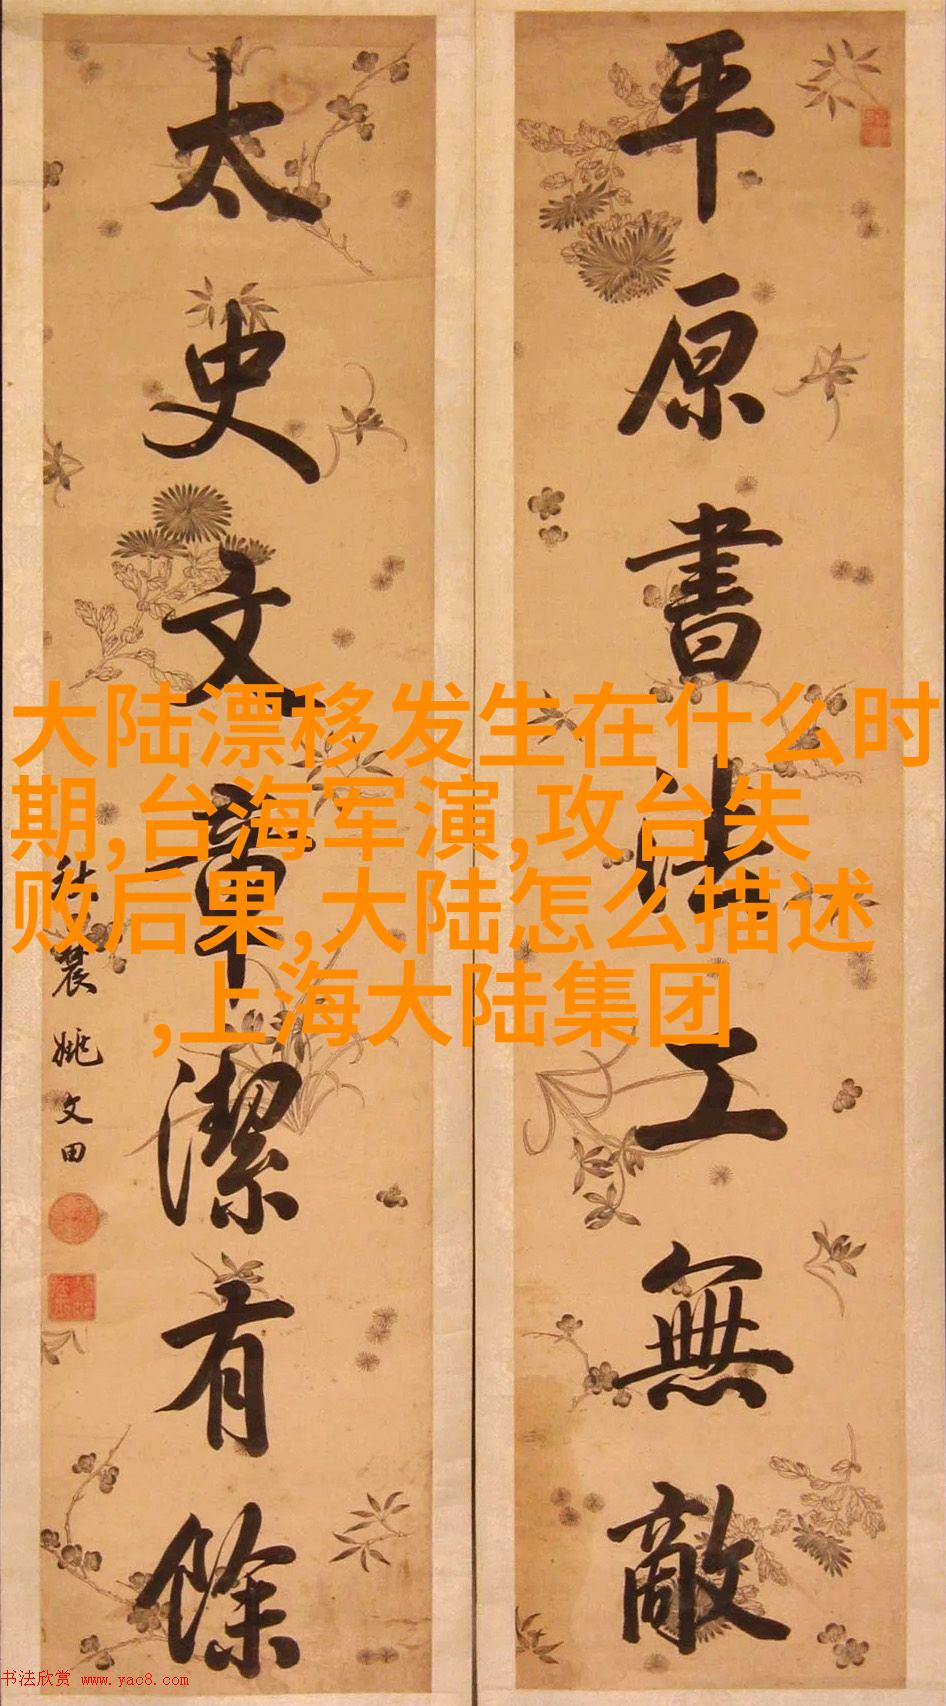 平原書法工無敵
太史文章潔有餘
秋農姚文田
大陆漂移发生在什么时
期,台海军演,攻台失
败后果,大陆怎么描述
,上海大陆集团
书法欣赏 www.yac8.com